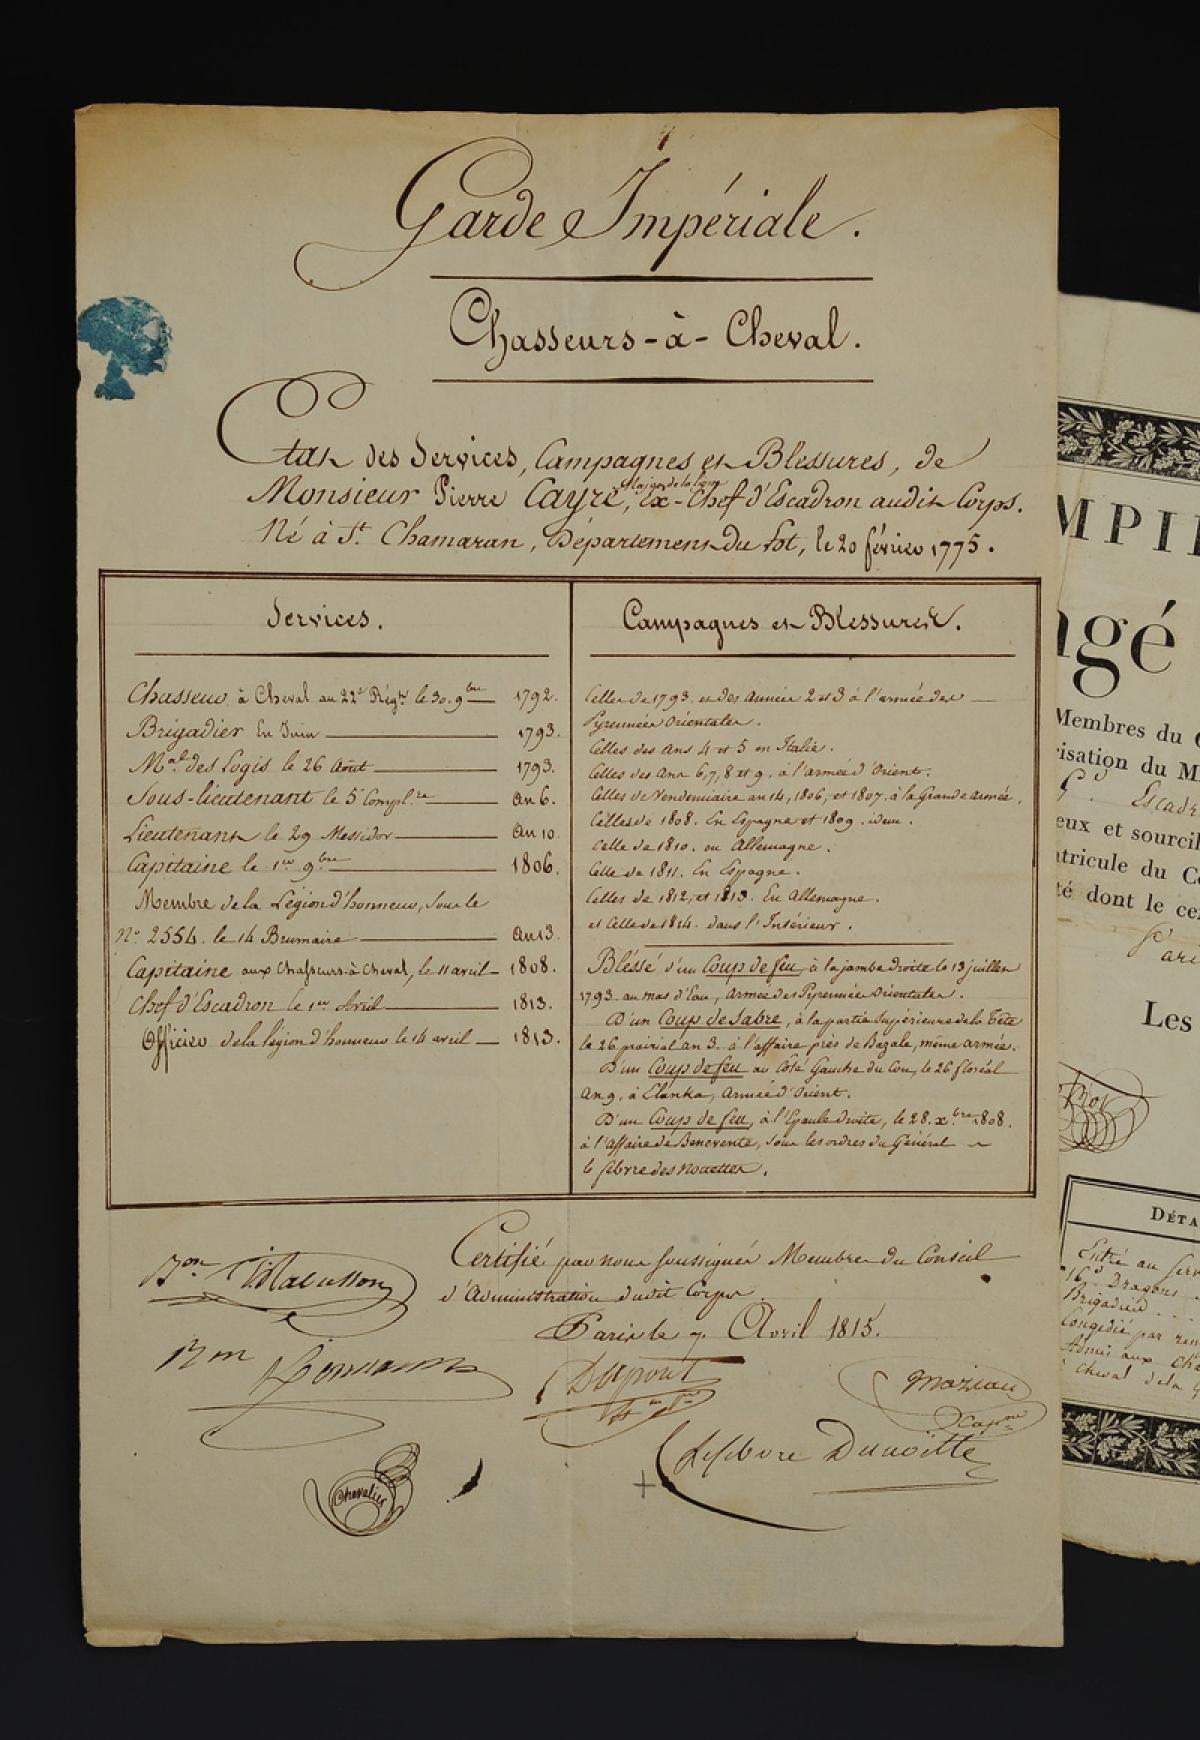 Garde Impériale.
Chasseurs-à-Cheval.
Etat des Services, Campagnes et Blessures, de
Major de la ligne
Monsieur Pierre Cayre, Ex-Chef d'Escadron audit Corps.
Né à St. Chamaran, Département du Lot, le 20 février 1775.
Services.
Chasseur à Cheval au 22e Régt. le 30. 9bre 1792.
Brigadier En Juin 1793.
Mal. des Logis le 26 Août 1793.
Sous-lieutenant le 5e Compl.re An 6.
Lieutenant le 29 Messidor An 10.
Capitaine le 1er 9bre 1806.
Membre de la Légion d'honneur, sous le
No. 2554. le 14 Brumaire An 13.
Capitaine aux Chasseurs-à-Cheval, le 11 avril 1808.
Chef d'Escadron le 1er Avril 1813.
Officier de la légion d'honneur le 14 avril 1813.
Campagnes et Blessures.
Celles de 1793. et des Années 2 et 3 à l'armée des
Pyrennées Orientales.
Celles des ans 4 et 5 en Italie.
Celles des Ans 6, 7, 8 et 9. à l'armée d'Orient.
Celles de Vendemiaire an 14, 1806, et 1807. à la Grande armée.
Celles de 1808. En Espagne et 1809. idem.
Celle de 1810. en Allemagne.
Celle de 1811. En Espagne.
Celles de 1812, et 1813. En Allemagne.
et Celle de 1814. dans l'Intérieur.
Bléssé d'un Coup de feu à la jambe droite le 13 juillet
1793. au mas d'Eau, Armée des Pyrennées Orientales.
D'un Coup de Sabre, à la partie Supérieure de la Tête
le 26 prairial an 3. à l'affaire près de Bezale, même armée.
D'un Coup de feu au Coté Gauche du Cou, le 26 floréal
An 9, à Elanka, Armée d'Orient.
D'un Coup de feu, à l'Epaule droite, le 28. Xbre 1808.
à l'affaire de Benevente, sous les ordres du Général
le febvre des nouettes.
Certifié par nous Soussignés Membres du Conseil
d'Administration dudit Corps.
Paris le 7. Avril 1815.
Bon
Bon
Dupont
Moziau
Capne
Lefebvre Dunoitte
Chevalier
MPI
ngé
Membres du C
risation du M
Escadr
eux et sourcil
atricule du Co
té dont le ce
Pari
Les
DÉTA
Entré au Serv
16e Dragons
Brigadier
Congédié par
Admis aux Cha
à cheval de la G